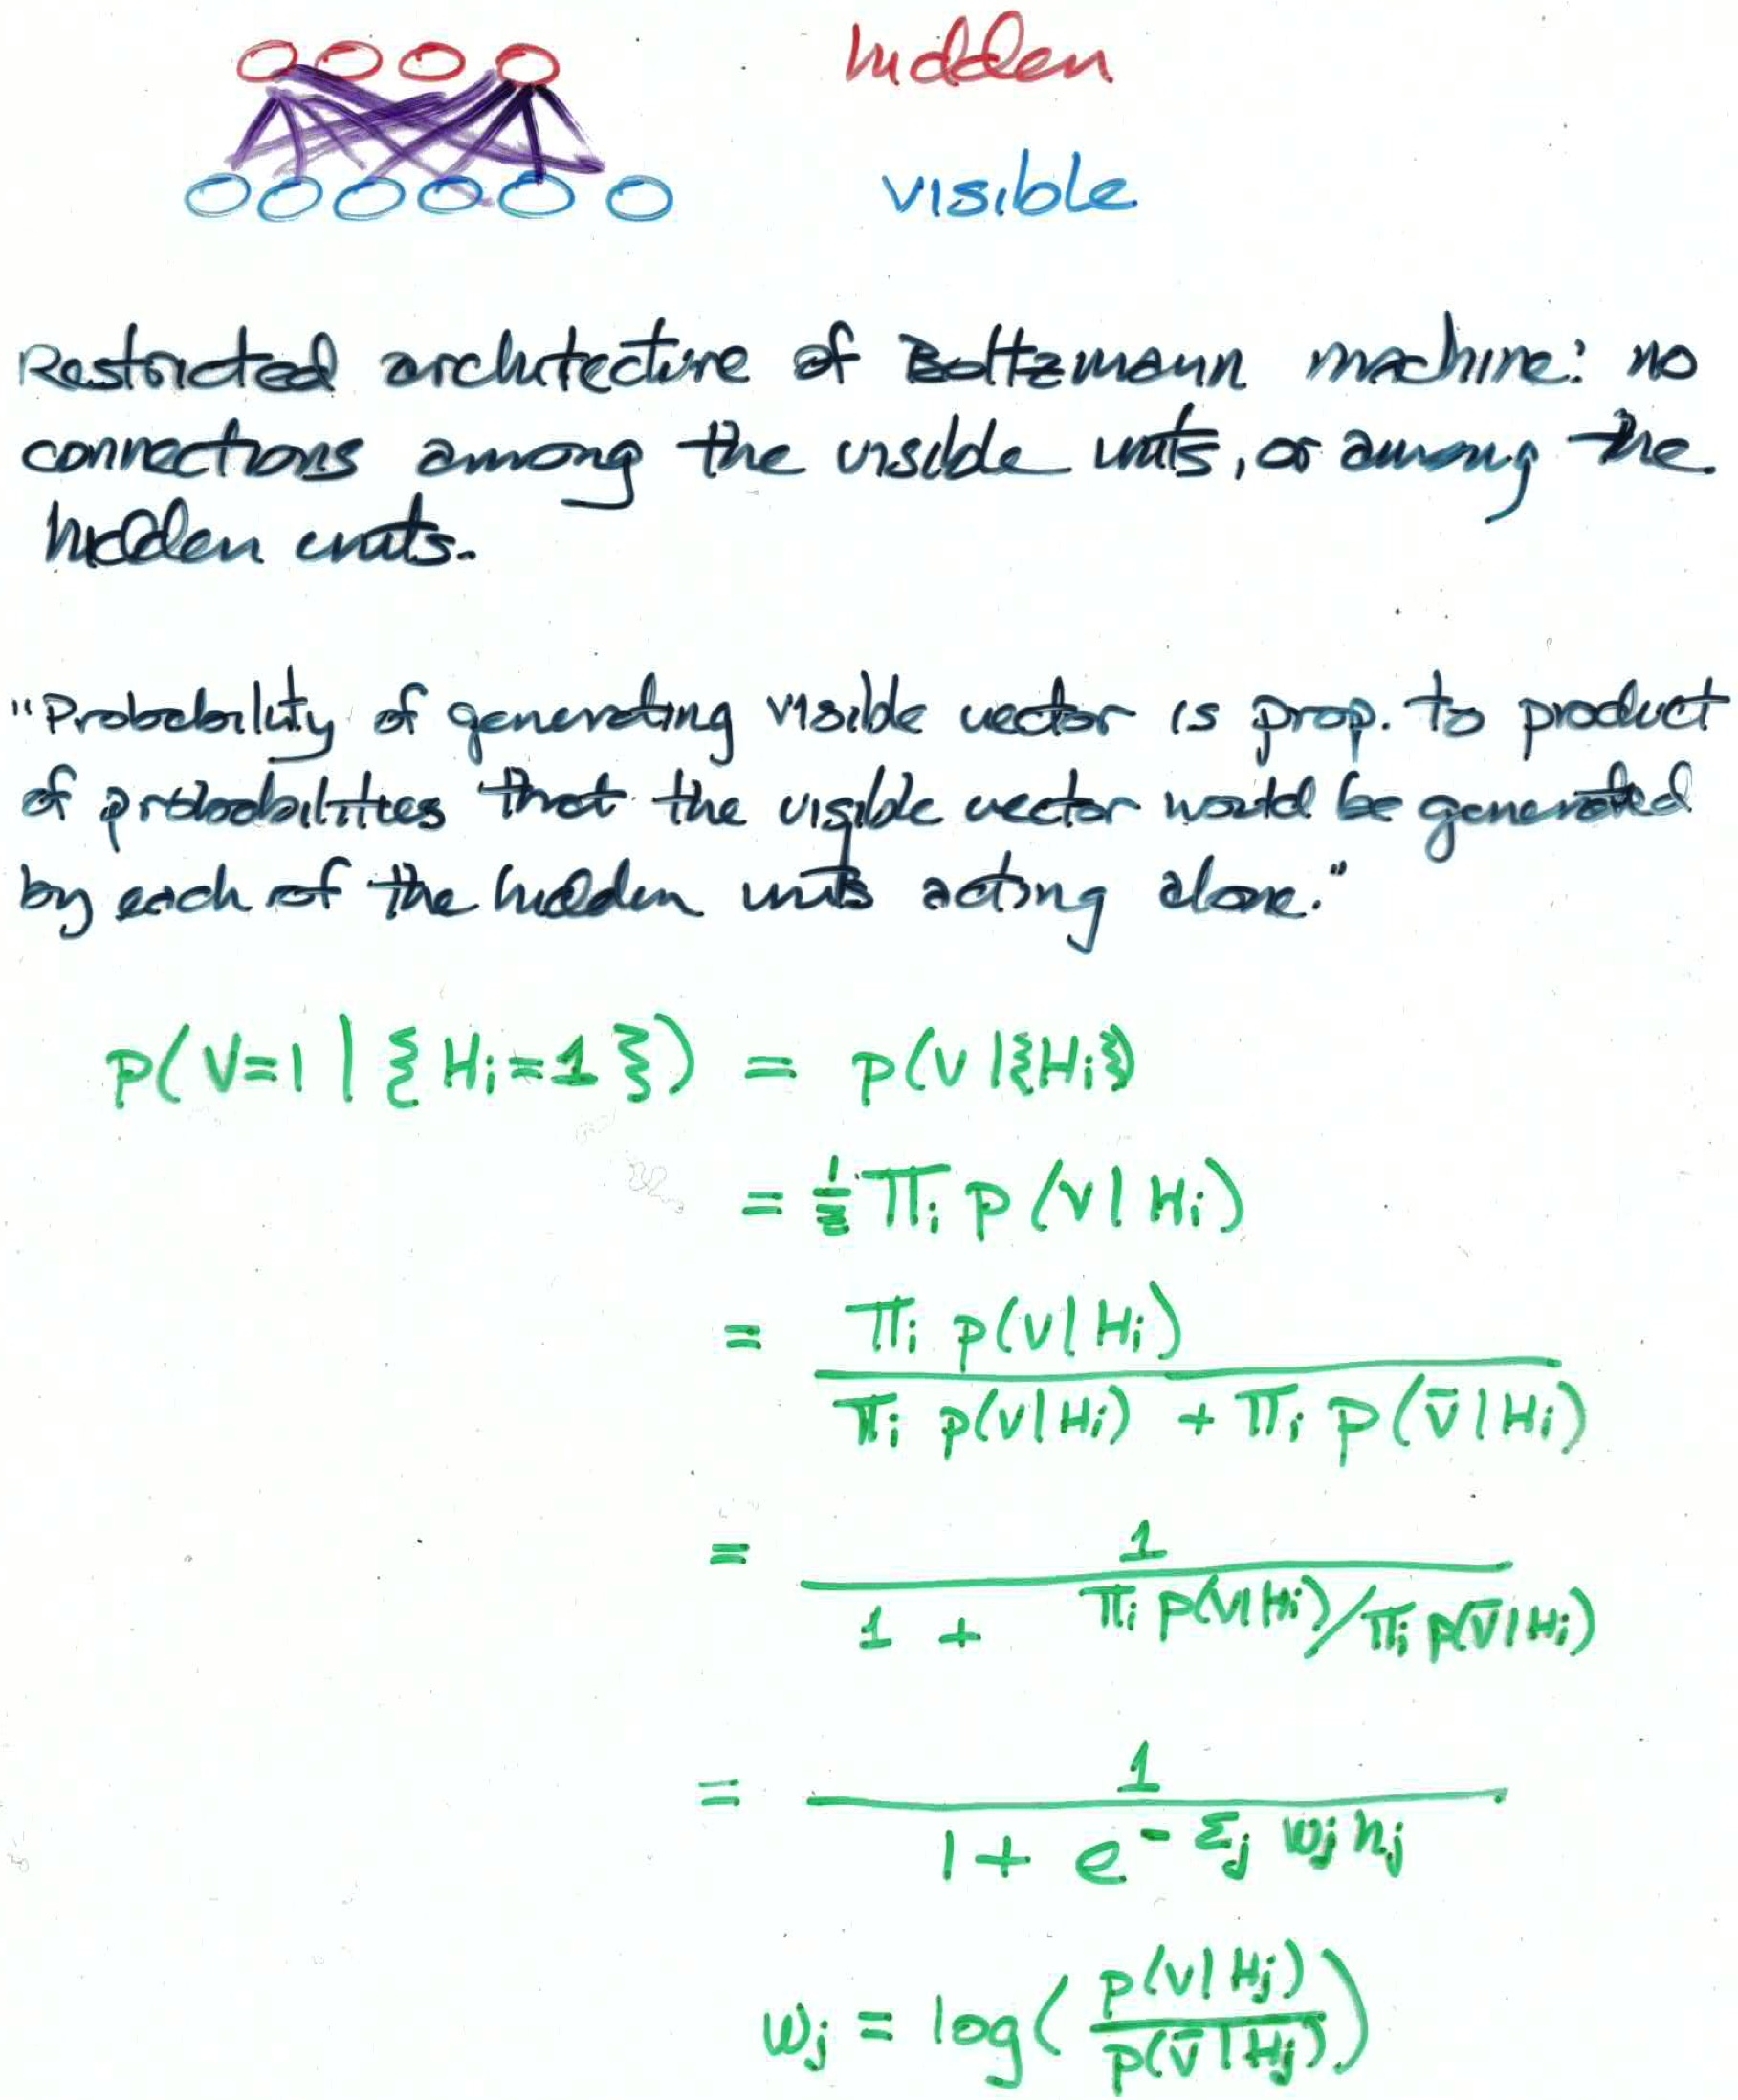 hidden
visible
Restricted architecture of Boltzmann machine: no
connections among the visible units, or among the
hidden units.
"Probability of generating visible vector is prop. to product
of probabilities that the visible vector would be generated
by each of the hidden units acting alone."
p(V=1 | {Hi=1}) = p(V|{Hi})
= 1/Z Πi p(V|Hi)
= Πi p(V|Hi)
Πi p(V|Hi) + Πi p(V̄|Hi)
= 1
1 + Πi p(V|Hi)/Πi p(V̄|Hi)
= 1
1 + e^-Σj wj hj
wj = log( p(V|Hj)
p(V̄|Hj) )